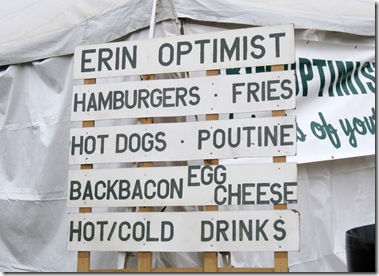 ERIN OPTIMIST
HAMBURGERS · FRIES
HOT DOGS · POUTINE
BACKBACON EGG CHEESE
HOT/COLD DRINKS
OPTIMIS
of you